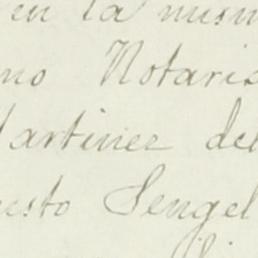 en la mism
no Notaris
Martinez del
usto Sengel